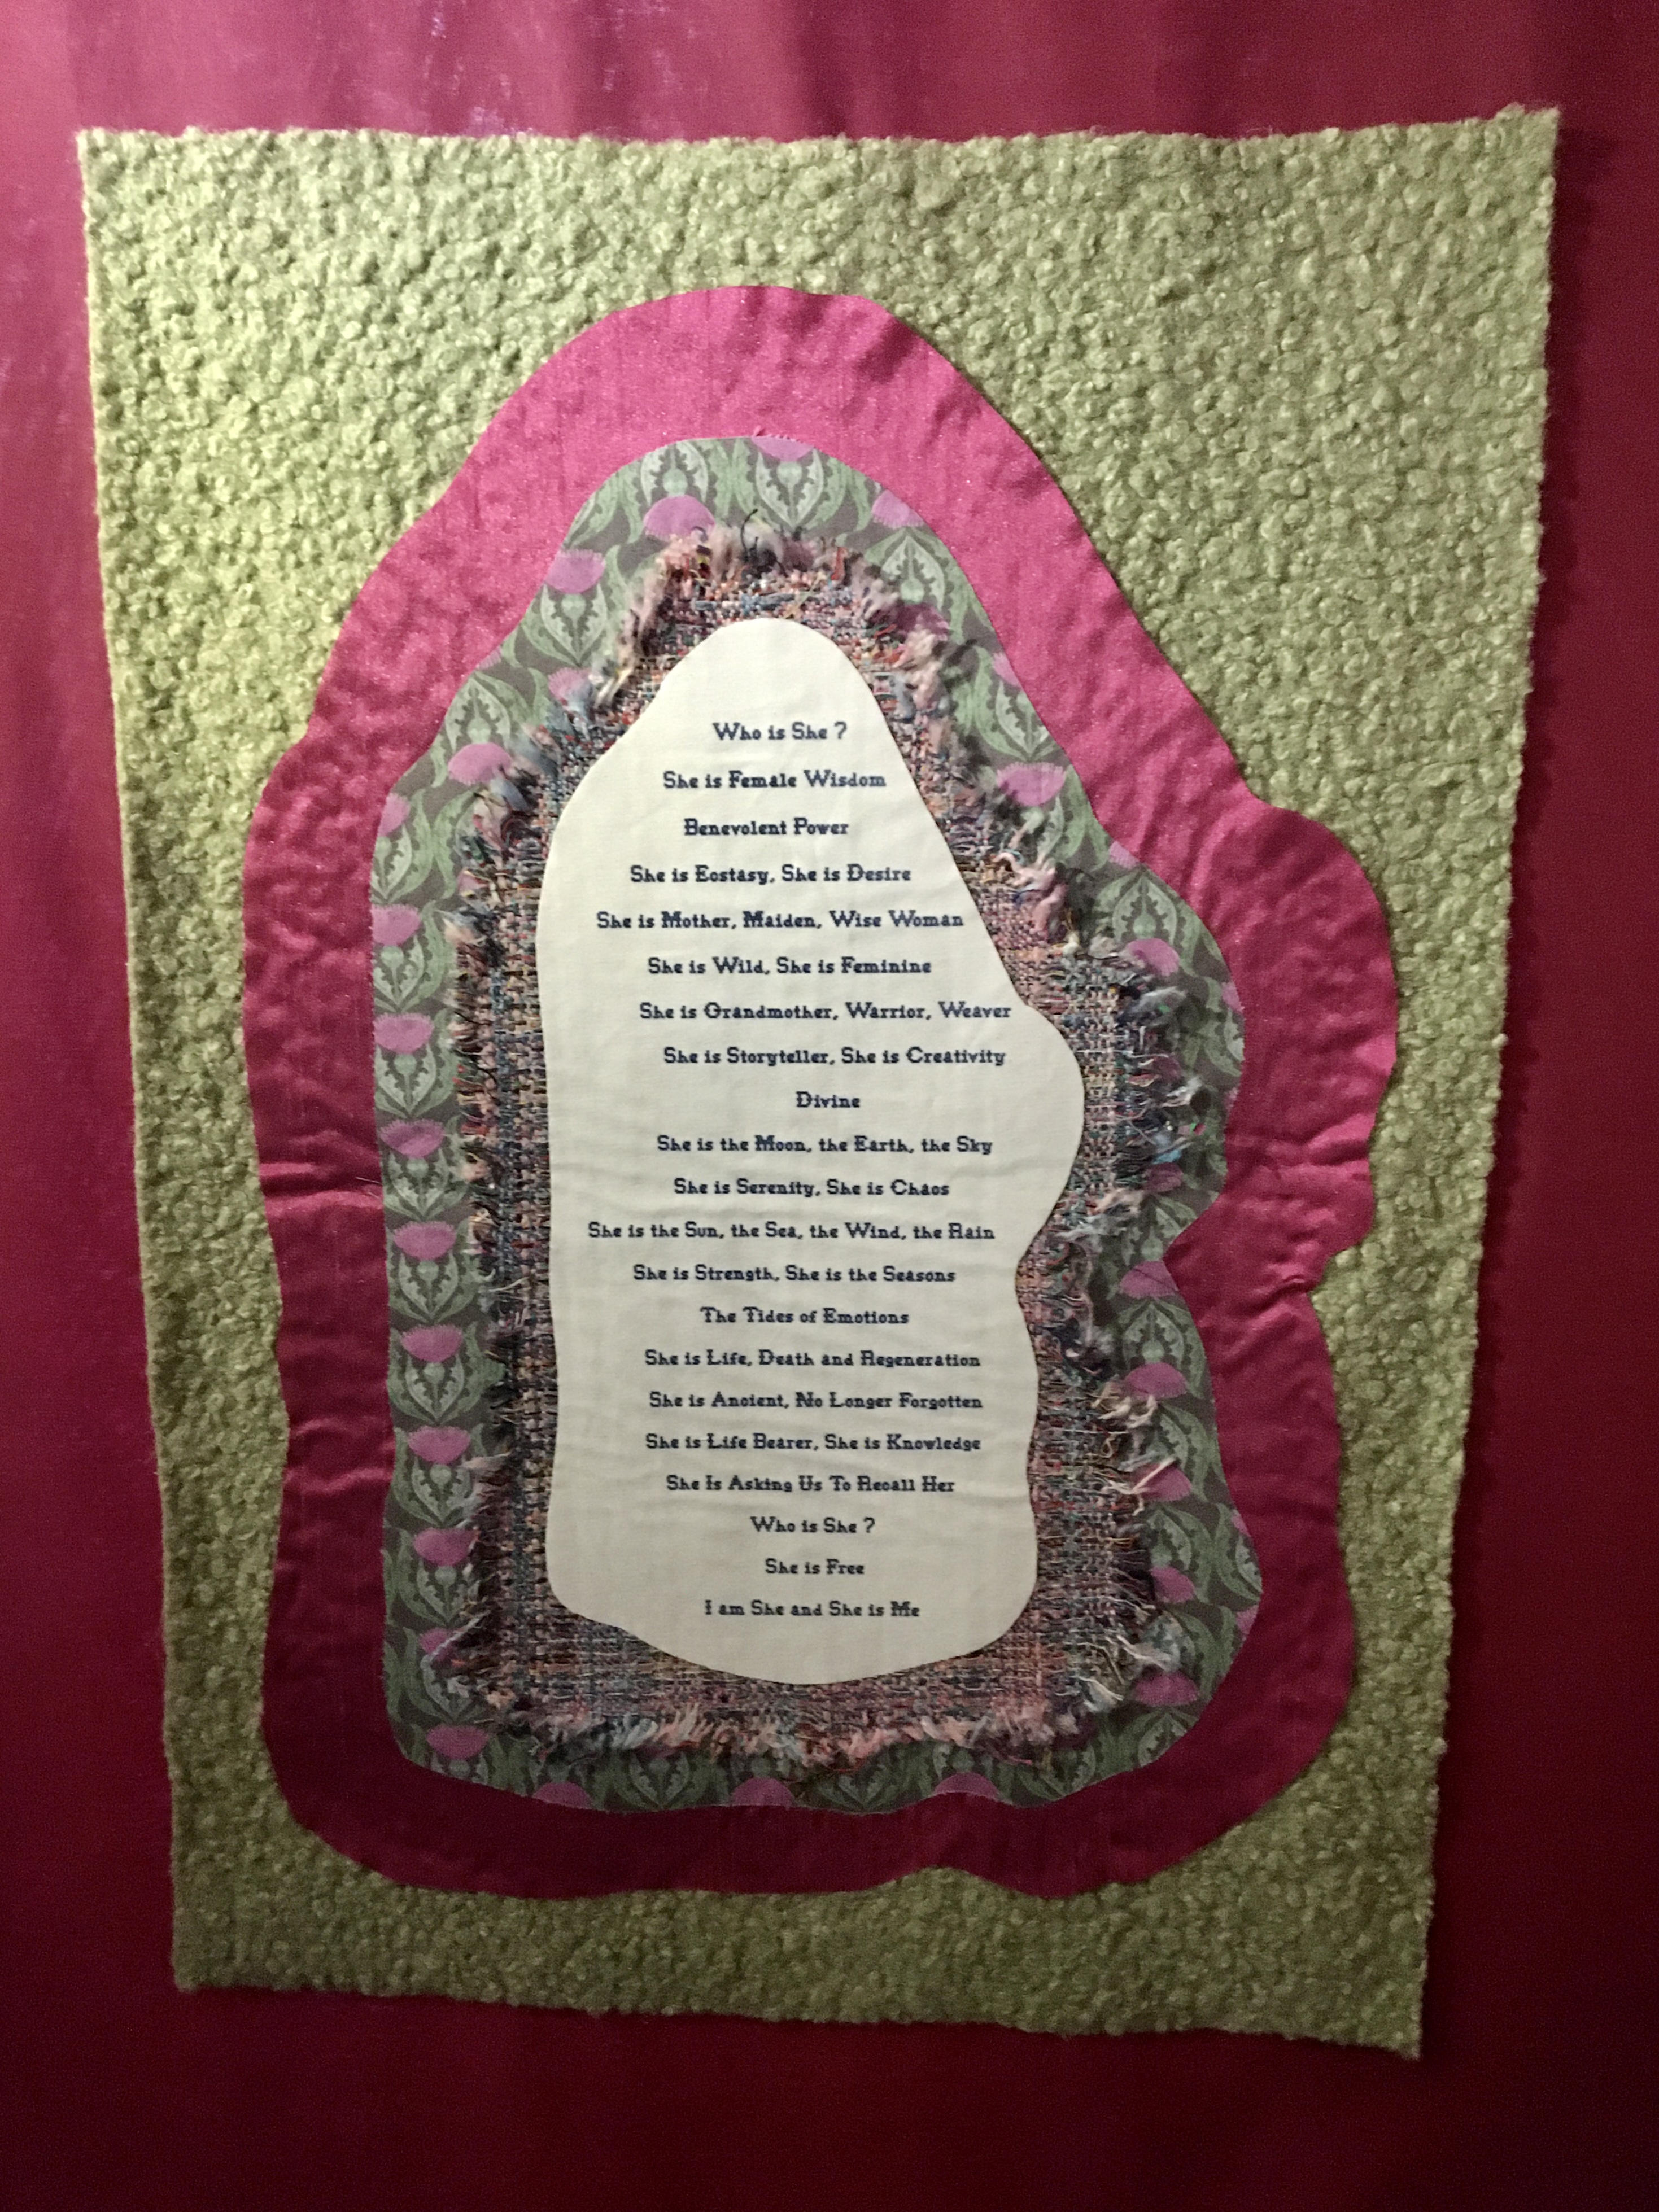 Who is She ?
She is Female Wisdom
Benevolent Power
She is Ecstasy, She is Desire
She is Mother, Maiden, Wise Woman
She is Wild, She is Feminine
She is Grandmother, Warrior, Weaver
She is Storyteller, She is Creativity
Divine
She is the Moon, the Earth, the Sky
She is Serenity, She is Chaos
She is the Sun, the Sea, the Wind, the Rain
She is Strength, She is the Seasons
The Tides of Emotions
She is Life, Death and Regeneration
She is Ancient, No Longer Forgotten
She is Life Bearer, She is Knowledge
She Is Asking Us To Recall Her
Who is She ?
She is Free
I am She and She is Me